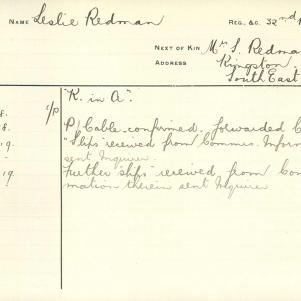 NAME Leslie Redman REG. &C. 32nd
NEXT OF KIN Mrs S. Redma
ADDRESS Kingston
South East
8. c/p "K. in A".
8. P/ Cable confirmed. forwarded C
19. "Slips" received from Commes. Inform
sent Inquirer.
19 Further "slips" received from Com
mation therein sent Inquirer